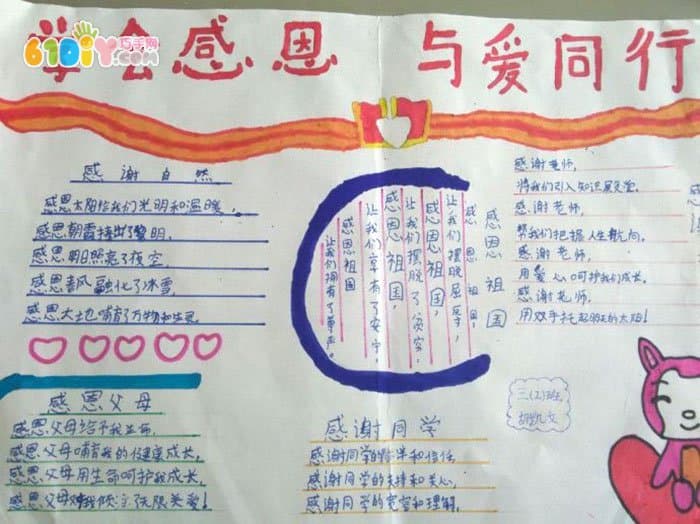 学会感恩 与爱同行
610DIY巧手网
.COM
感谢自然
感恩太阳给我们光明和温暖,
感恩朝霞捧出了黎明,
感恩明月照亮了夜空,
感恩春风融化了冰雪,
感恩大地哺育了万物和生灵.
感恩父母
感恩父母给予我生命,
感恩父母哺育我的健康成长,
感恩父母用生命呵护我成长,
感恩父母对我倾注无限关爱!
感恩祖国
感恩祖国,
让我们摆脱屈辱,
感恩祖国,
让我们摆脱了贫穷,
感恩祖国,
让我们享有了安宁,
感恩祖国
让我们拥有了尊严.
感谢老师,
将我们引入知识殿堂.
感谢老师,
帮我们把握人生航向.
感谢老师,
用爱心呵护我们成长.
感谢老师,
用双手托起明天的太阳!
三(2)班,
胡凯文
感谢同学
感谢同学的伴和信任,
感谢同学的支持和关心,
感谢同学的宽容和理解,